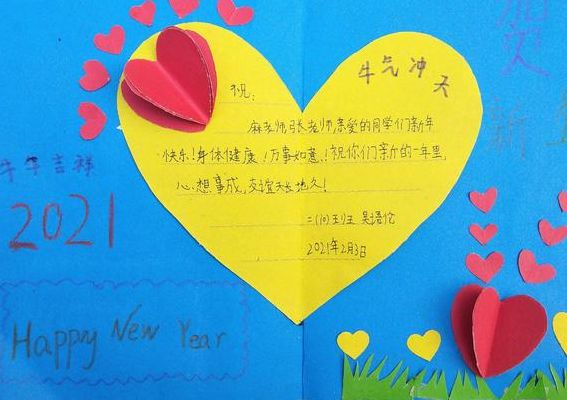 贺
新
牛气冲天
祝:
麻老师,张老师,亲爱的同学们新年
快乐!身体健康!万事如意!祝你们新的一年里,
心想事成,友谊天长地久!
二(10)班
2021年2月3日
牛牛吉祥
2021
Happy New Year